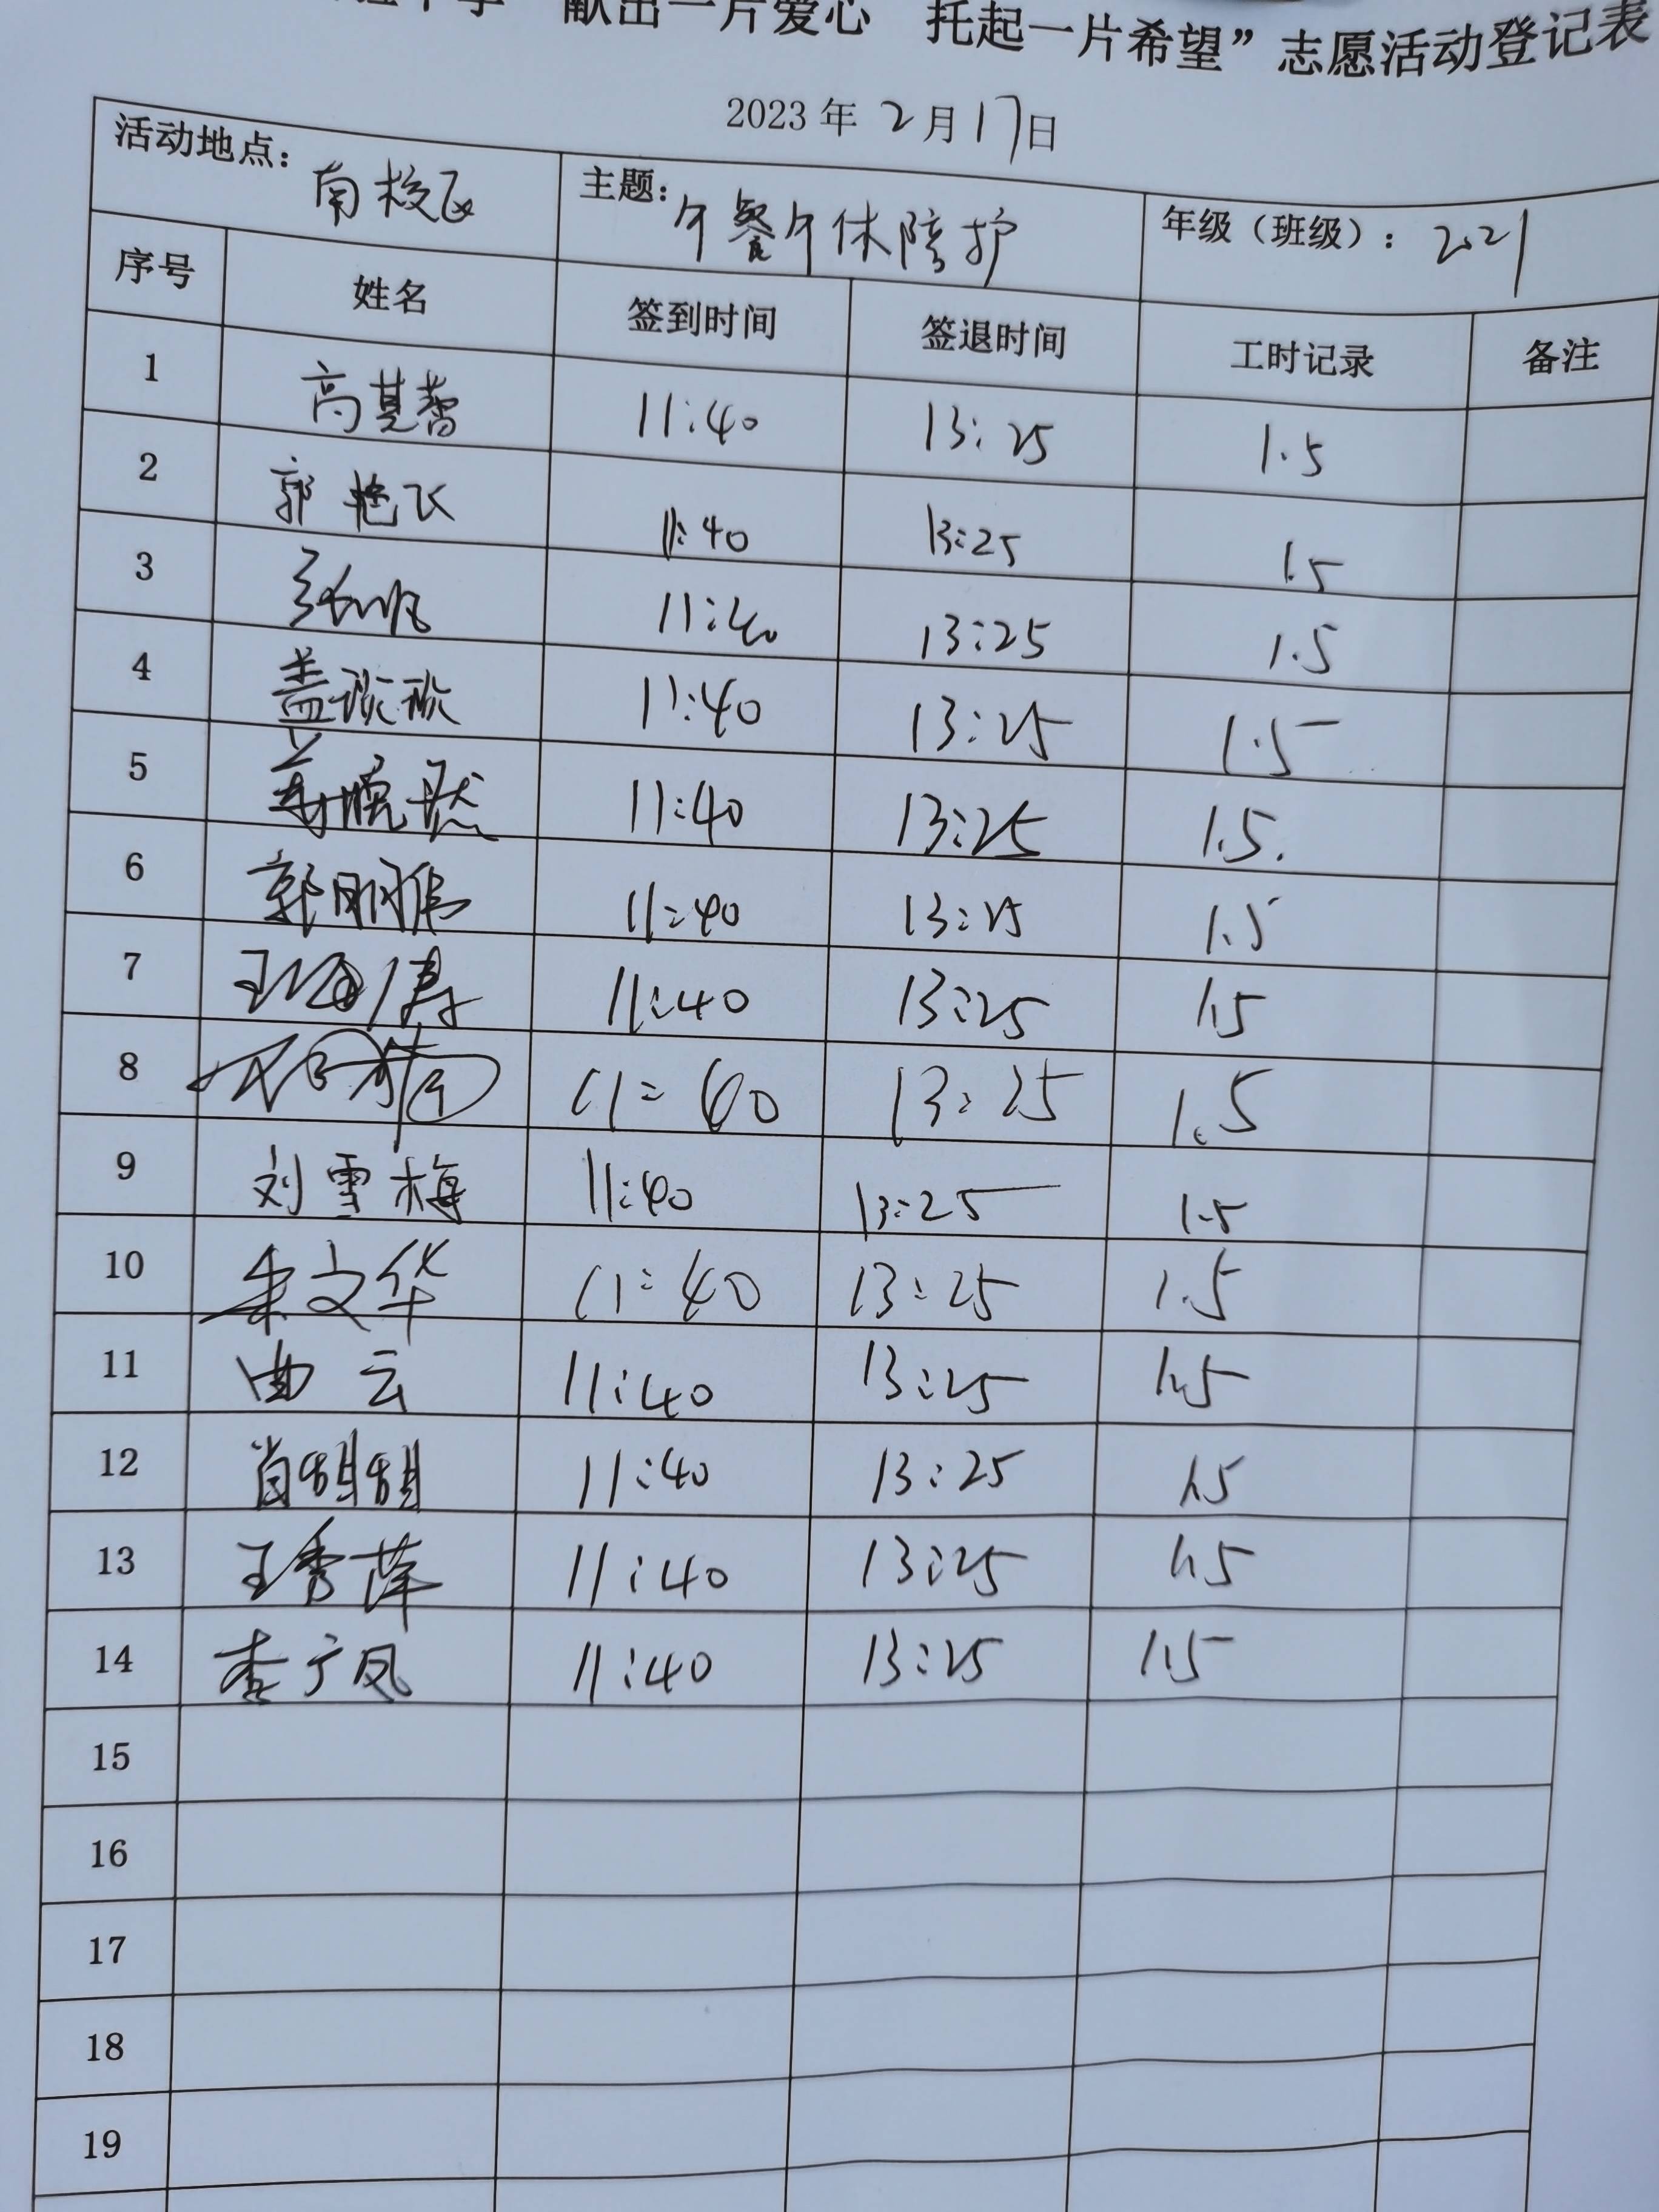 献出一片爱心 托起一片希望”志愿活动登记表
2023年2月17日
活动地点：南校区 主题：午餐午休陪护 年级（班级）：2021
序号 姓名 签到时间 签退时间 工时记录 备注
1 高其蕾 11:40 13:25 1.5
2 郭艳飞 11:40 13:25 1.5
3 11:40 13:25 1.5
4 盖 11:40 13:25 1.5
5 姜晓燃 11:40 13:25 1.5.
6 郭丽雅 11:40 13:25 1.5
7 王海涛 11:40 13:25 1.5
8 11:40 13:25 1.5
9 刘雪梅 11:40 13:25 1.5
10 朱文华 11:40 13:25 1.5
11 曲云 11:40 13:25 1.5
12 肖明明 11:40 13:25 1.5
13 王秀萍 11:40 13:25 1.5
14 李广凤 11:40 13:25 1.5
15
16
17
18
19